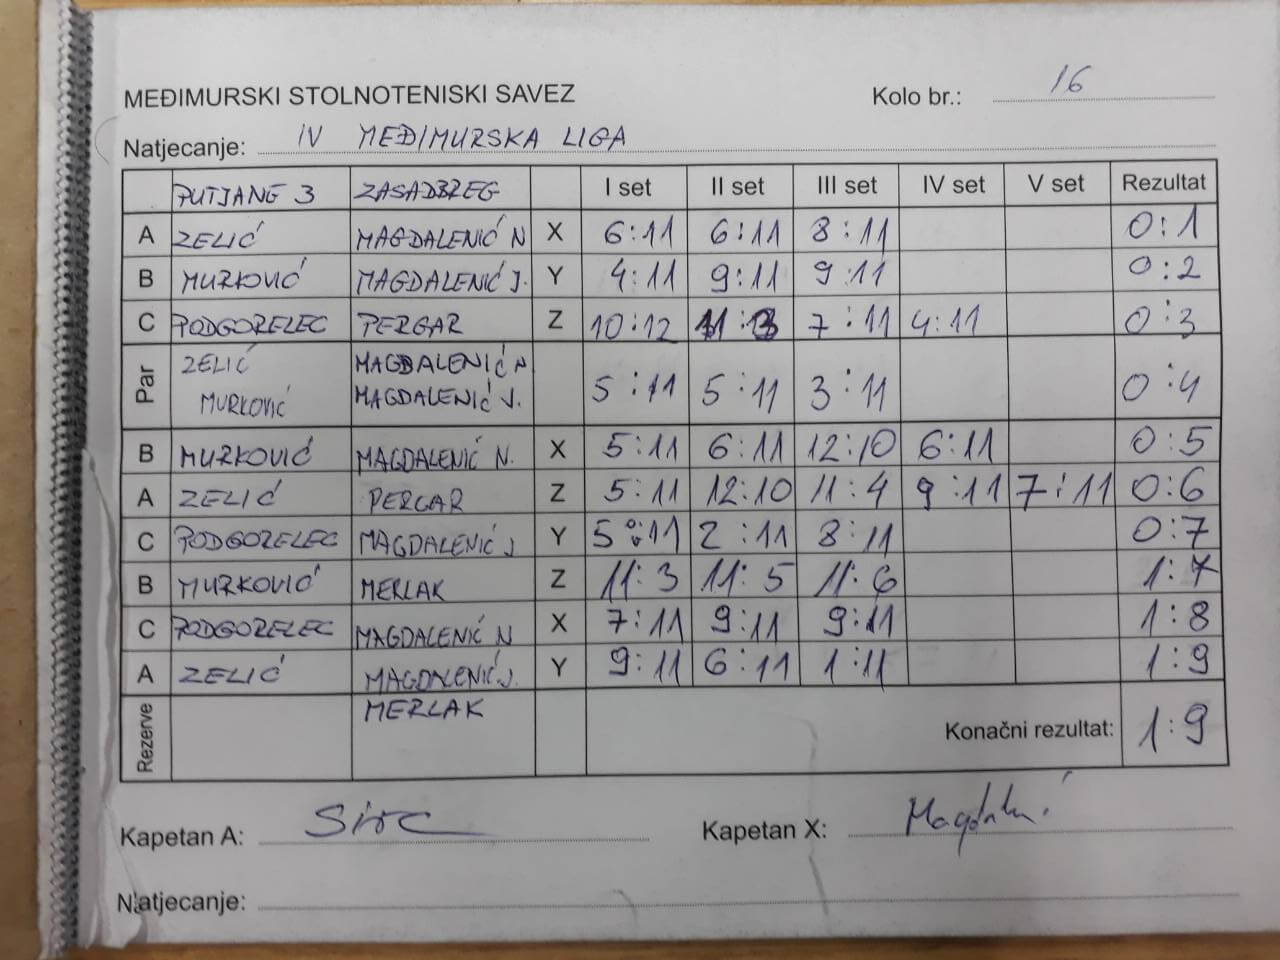 MEĐIMURSKI STOLNOTENISKI SAVEZ Kolo br.: 16
Natjecanje: IV MEĐIMURSKA LIGA
PUTJANE 3 ZASADBREG I set II set III set IV set V set Rezultat
A ZELIĆ MAGDALENIĆ N X 6:11 6:11 8:11 0:1
B MURKOVIĆ MAGDALENIĆ J. Y 4:11 9:11 9:11 0:2
C PODGORELEC PERGAR Z 10:12 11:3 7:11 4:11 0:3
Par ZELIĆ MAGDALENIĆ N
MURKOVIĆ MAGDALENIĆ J. 5:11 5:11 3:11 0:4
B MURKOVIĆ MAGDALENIĆ N. X 5:11 6:11 12:10 6:11 0:5
A ZELIĆ PERGAR Z 5:11 12:10 11:4 9:11 7:11 0:6
C PODGORELEC MAGDALENIĆ J Y 5:11 2:11 8:11 0:7
B MURKOVIĆ MERLAK Z 11:3 11:5 11:6 1:7
C PODGORELEC MAGDALENIĆ N X 7:11 9:11 9:11 1:8
A ZELIĆ MAGDALENIĆ J. Y 9:11 6:11 1:11 1:9
Rezerve MERLAK Konačni rezultat: 1:9
Kapetan A: Kapetan X:
Natjecanje: